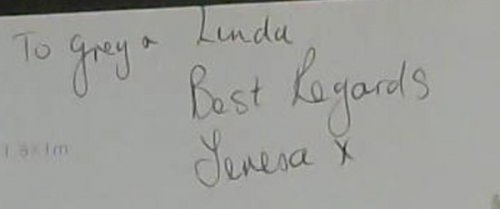 To Greg & Linda
Best Regards
Teresa x